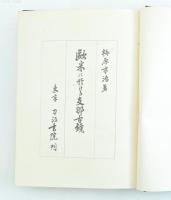 梅原末治著
歐米に於ける支那古鏡
東京 刀江書院 刊